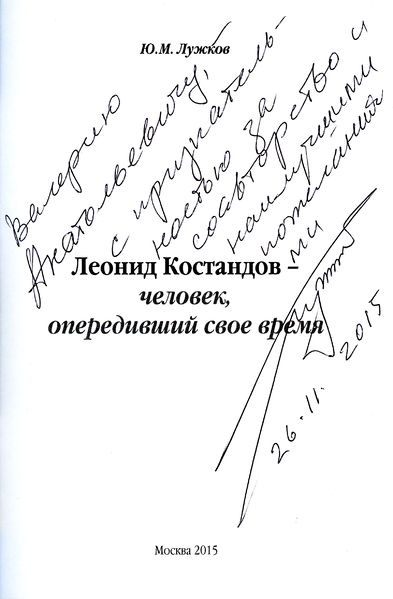 Ю.М. Лужков
Валерию
Анатольевичу,
с признатель-
ностью за
соавторство и
наилучшими
пожелания
ми
Леонид Костандов –
человек,
опередивший свое время
26.11.2015
Москва 2015